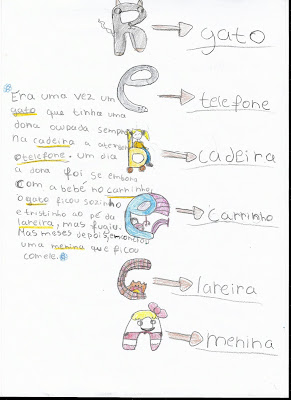 R
gato
e
telefone
b
cadeira
e
carrinho
c
lareira
A
menina
Era uma vez um
gato que tinha uma
dona sempre
na cadeira a atender
o telefone. um dia
a dona foi se embora
com a bebé no carrinho,
o gato ficou sozinho
e tristinho ao pé da
lareira, mas fugiu.
Mas meses depois, encontrou
uma menina que ficou
com ele.